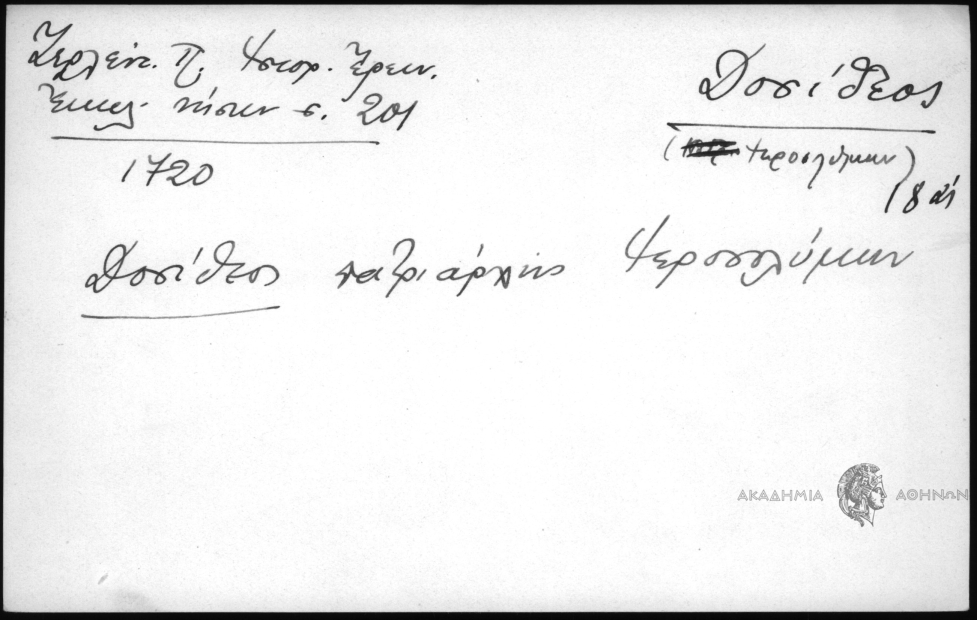 Ζερλέντ. Π. Ἱστορ. Ἐρευν.
Ἐκκλ. νήσων σ. 201
1720
Δοσίθεος
(Ἱεροσολύμων)
18 αἰ
Δοσίθεος πατριάρχης Ἱεροσολύμων
ΑΚΑΔΗΜΙΑ ΑΘΗΝΩΝ